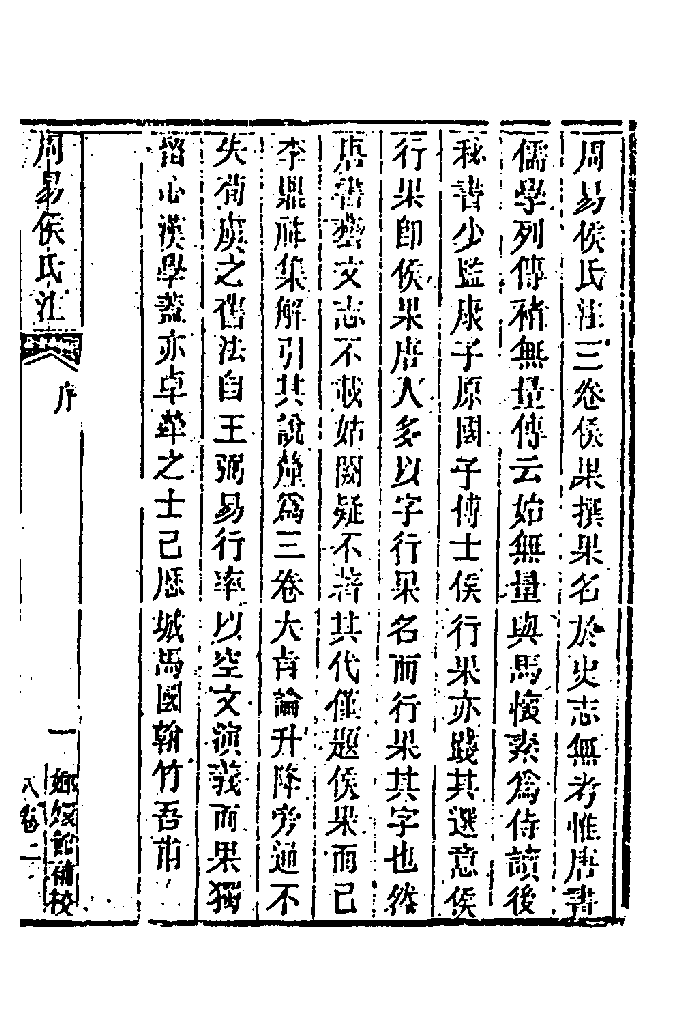 周易侯氏注三卷侯果撰果名於史志無考惟唐書
儒學列傳褚無量傳云始無量與馬懷素爲侍讀後
秘書少監康子原國子博士侯行果亦踐其選意侯
行果卽侯果唐人多以字行果名而行果其字也然
唐書藝文志不載姑闕疑不著其代僅題侯果而已
李鼎祚集解引其說釐爲三卷大旨論升降旁通不
失荀虞之舊法自王弼易行率以空文演義而果獨
畱心漢學蓋亦卓犖之士已歷城馬國翰竹吾甫
周易侯氏注
序
一
嫏嬛館補校
八卷二